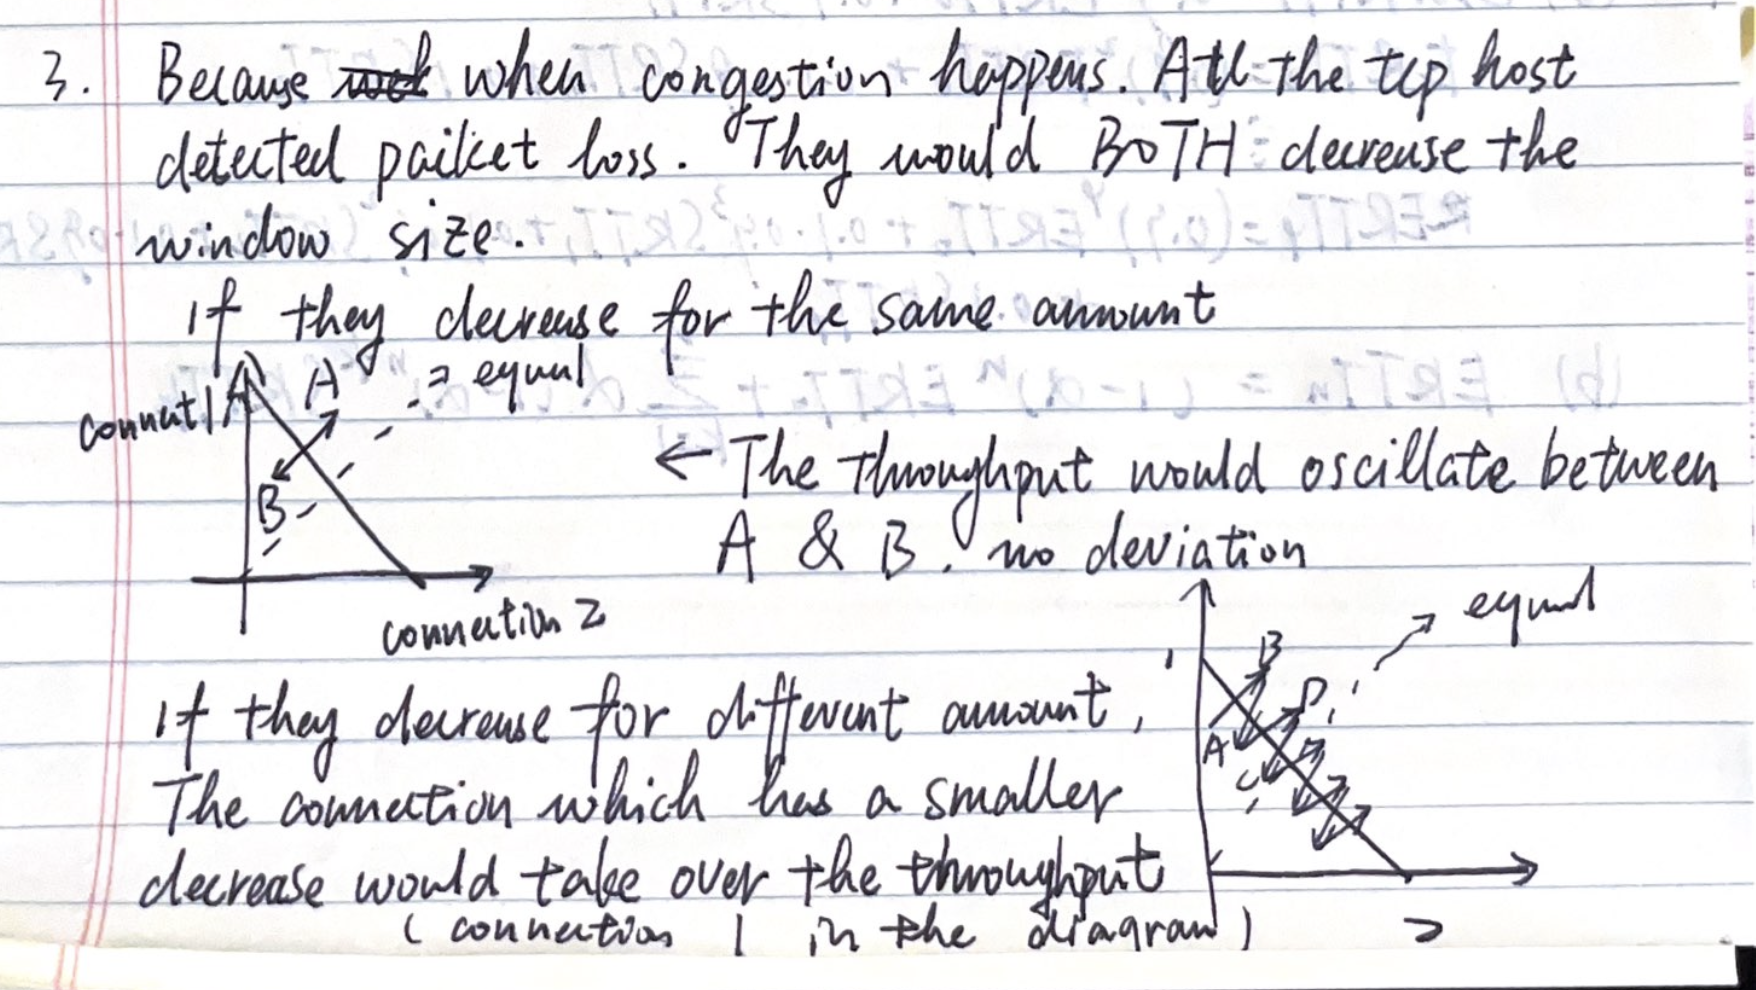 3. Because when congestion happens. All the tcp host
detected packet loss. They would BOTH decrease the
window size.
if they decrease for the same amount
A = equal
connect 1
← The throughput would oscillate between
B
A & B. no deviation
connection 2
equal
B
1
D
if they decrease for different amount,
A
C
The connection which has a smaller
decrease would take over the throughput
(connection 1 in the diagram)
2